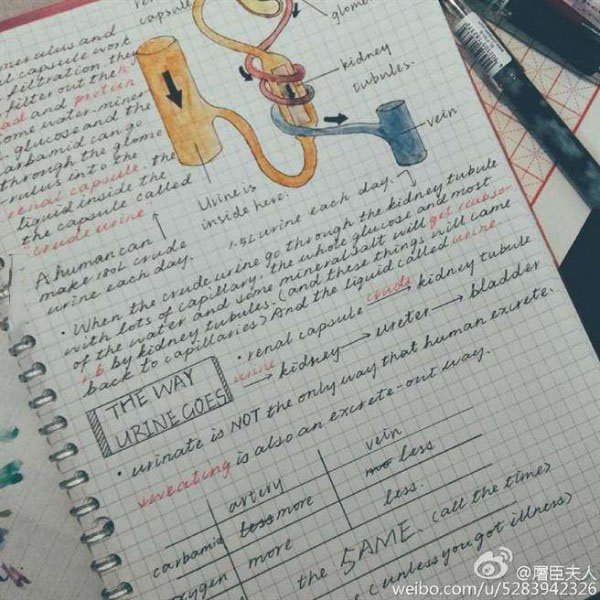 capsule
glome
kidney
tubules.
vein
Urine is
inside here.
merulus and
capsule work
filtration, they
filter out the
and protein
some water, miner
glucose and the
carbamid can go
through the glome
rulus into the
renal capsule, the
liquid inside the
the capsule called
crude urine
A human can
make 180L crude
urine each day.
1.5L urine each day.
· When the crude urine go through the kidney tubule
with lots of capillary, the whole glucose and most
of the water and some mineral salt will get reabsor
b by kidney tubules. (and these things will came
back to capillaries) And the liquid called urine.
THE WAY
URINE GOES
· renal capsule crude kidney tubule
urine kidney ureter bladder
· urinate is NOT the only way that human excrete.
sweating is also an excrete-out way.
artery vein
carbamid less more mo less
oxygen more less.
the SAME. (all the time)
(unless you got illness)
@屠臣夫人
weibo.com/u/5283942326